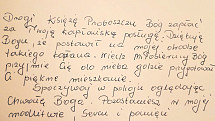 Drogi Księżę Proboszczu Bóg zapłać
za Twoją kapłańską posługę. Dziękuję
Bogu, że postawił na mojej drodze
takiego kapłana. Niech miłosierny Bóg
przyjmie Cię do nieba gdzie przygotował
Ci piękne mieszkanie.
Spoczywaj w pokoju oglądając
Chwałę Boga. Pozostaniesz w mojej
modlitwie sercu i pamięci